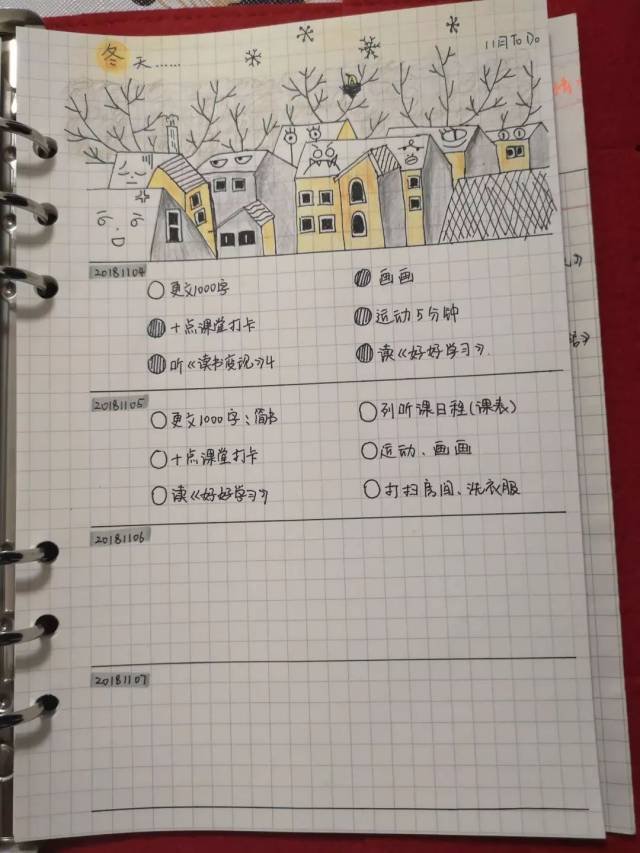 冬天……
11月 To Do
20181104
更文1000字
画画
十点课堂打卡
运动5分钟
听《读书变现》4
读《好好学习》.
20181105
更文1000字：简书
列听课日程(课表)
十点课堂打卡
运动、画画
读《好好学习》
打扫房间、洗衣服
20181106
20181107